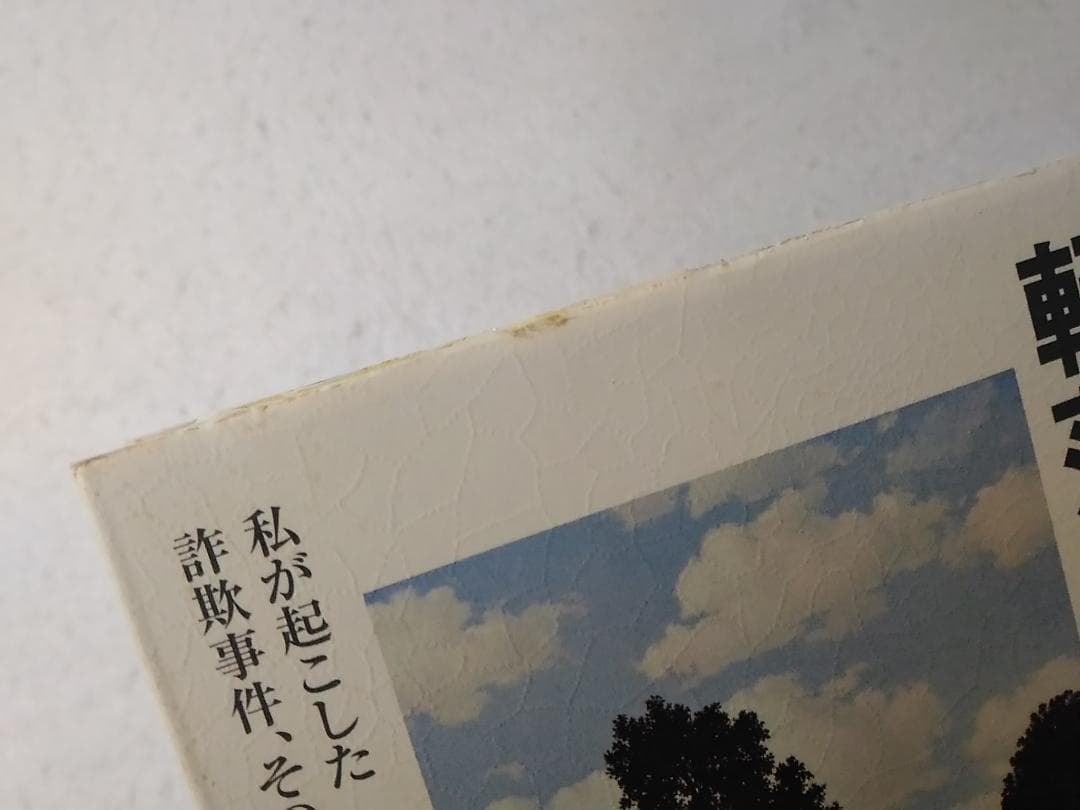 私が起こした
詐欺事件、その